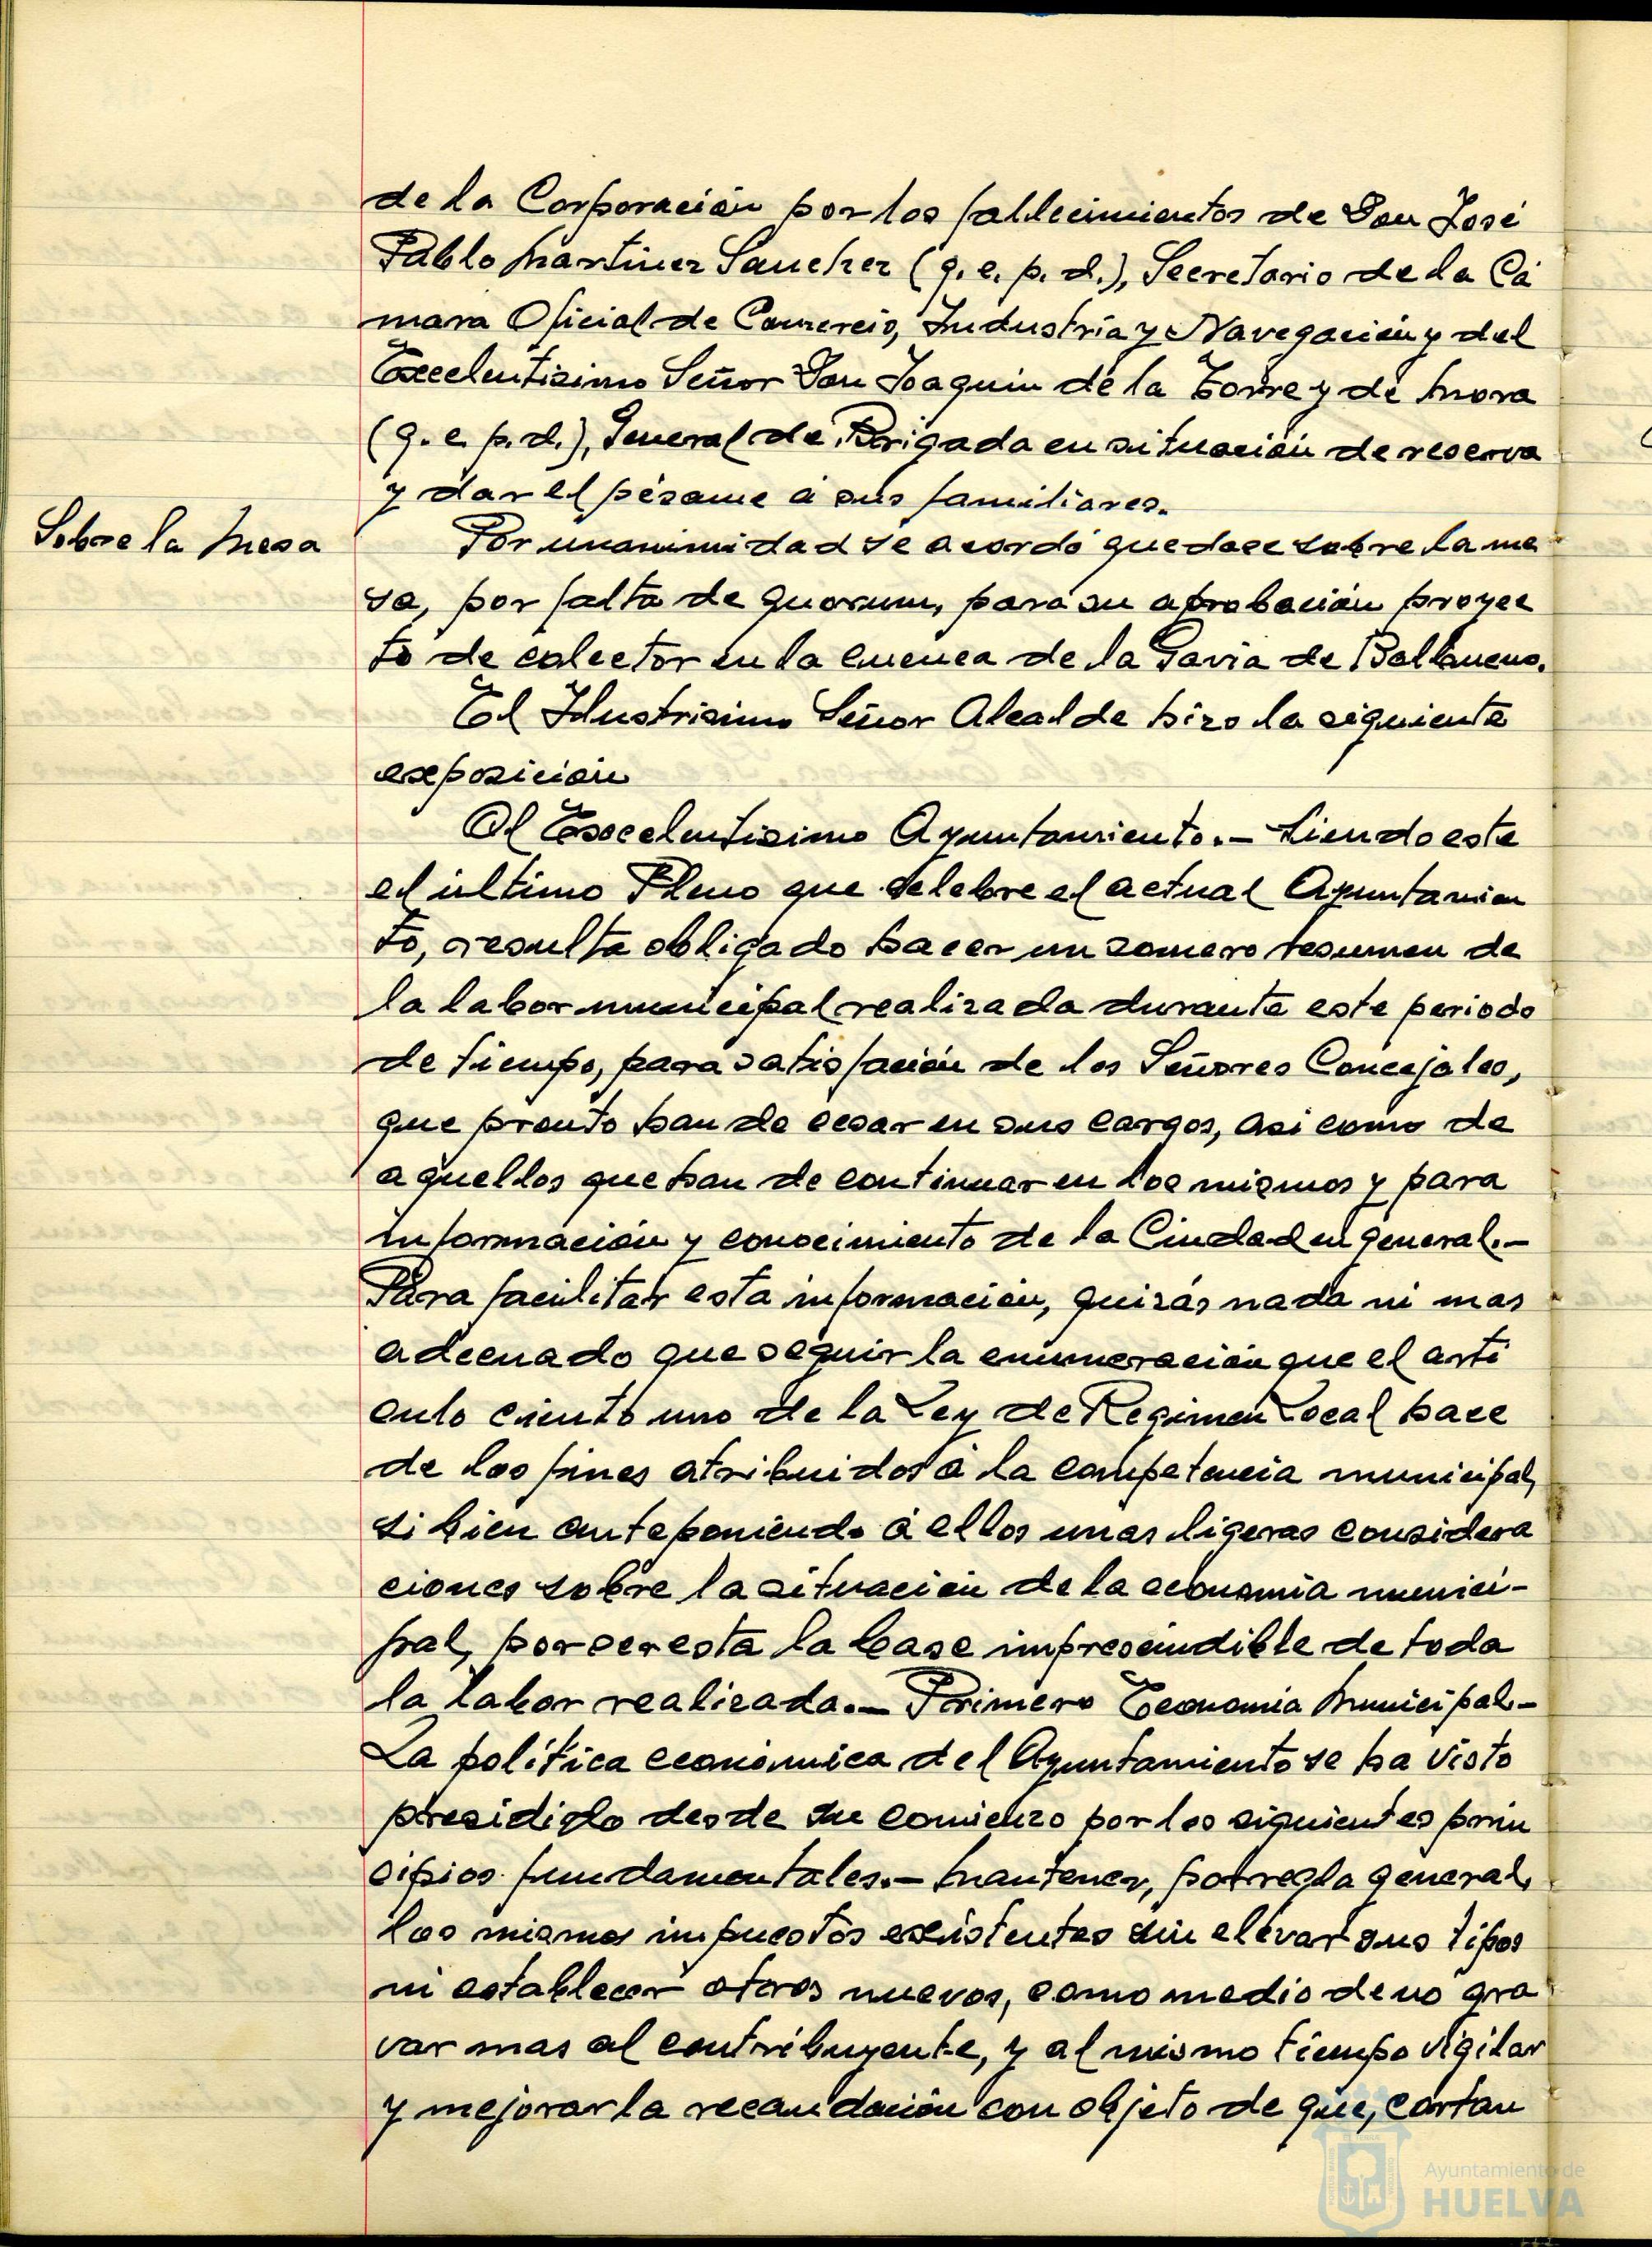 de la Corporación por los fallecimientos de Don José
Pablo Martinez Sanchez (q. e. p. d.), Secretario de la Cá
mara Oficial de Comercio, Industria y Navegación y del
Excelentisimo Señor Don Joaquin de la Torre y de Mora
(q. e. p. d.), General de Brigada en situación de reserva
y dar el pésame á sus familiares.
Sobre la Mesa
Por unanimidad se acordó quedase sobre la me
sa, por falta de quorum, para su aprobación proyec
to de colector en la cuenca de la Gavia de Balbueno.
El Ilustrisimo Señor Alcalde hizo la siguiente
exposición
Al Excelentisimo Ayuntamiento.- Siendo este
el último Pleno que celebre el actual Ayuntamien
to, resulta obligado hacer un somero resumen de
la labor municipal realizada durante este periodo
de tiempo, para satisfación de los Señores Concejales,
que pronto han de cesar en sus cargos, asi como de
aquellos que han de continuar en los mismos y para
información y conocimiento de la Ciudad en general.-
Para facilitar esta información, quizás nada ni mas
adecuado que seguir la enumeración que el arti
culo ciento uno de la Ley de Regimen Local hace
de los fines atribuidos á la competencia municipal,
si bien anteponiendo á ellos unas ligeras considera
ciones sobre la situación de la economia munici-
pal, por ser esta la base imprescindible de toda
la labor realizada.- Primero Economia Municipal.-
La política económica del Ayuntamiento se ha visto
presidido desde su comienzo por los siguientes prin
cipios fundamentales.- Mantener, por regla general,
los mismos impuestos existentes sin elevar sus tipos
ni establecer otros nuevos, como medio de no gra
var mas al contribuyente, y al mismo tiempo vigilar
y mejorar la recaudación con objeto de que, cortan
Ayuntamiento de
HUELVA